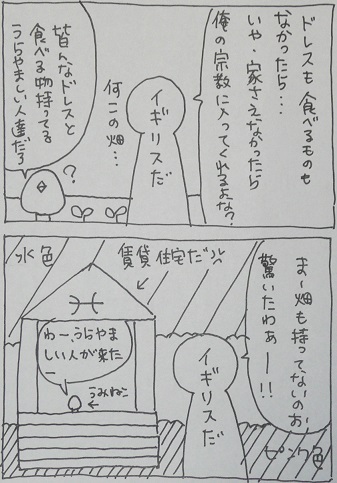 ドレスも食べるものも
なかったら…
いや、家さえなかったら
俺の宗教に入ってくれるよな?
イギリスだ
何この畑…
皆んなドレスと
食べる物持ってる
うらやましい人達だろ
?
ま〜畑も持ってないのお
驚いたわぁー!!
イギリスだ
賃貸住宅だ
水色
わー、うらやま
しい人が来た
ー
うみねこ
ピンク色